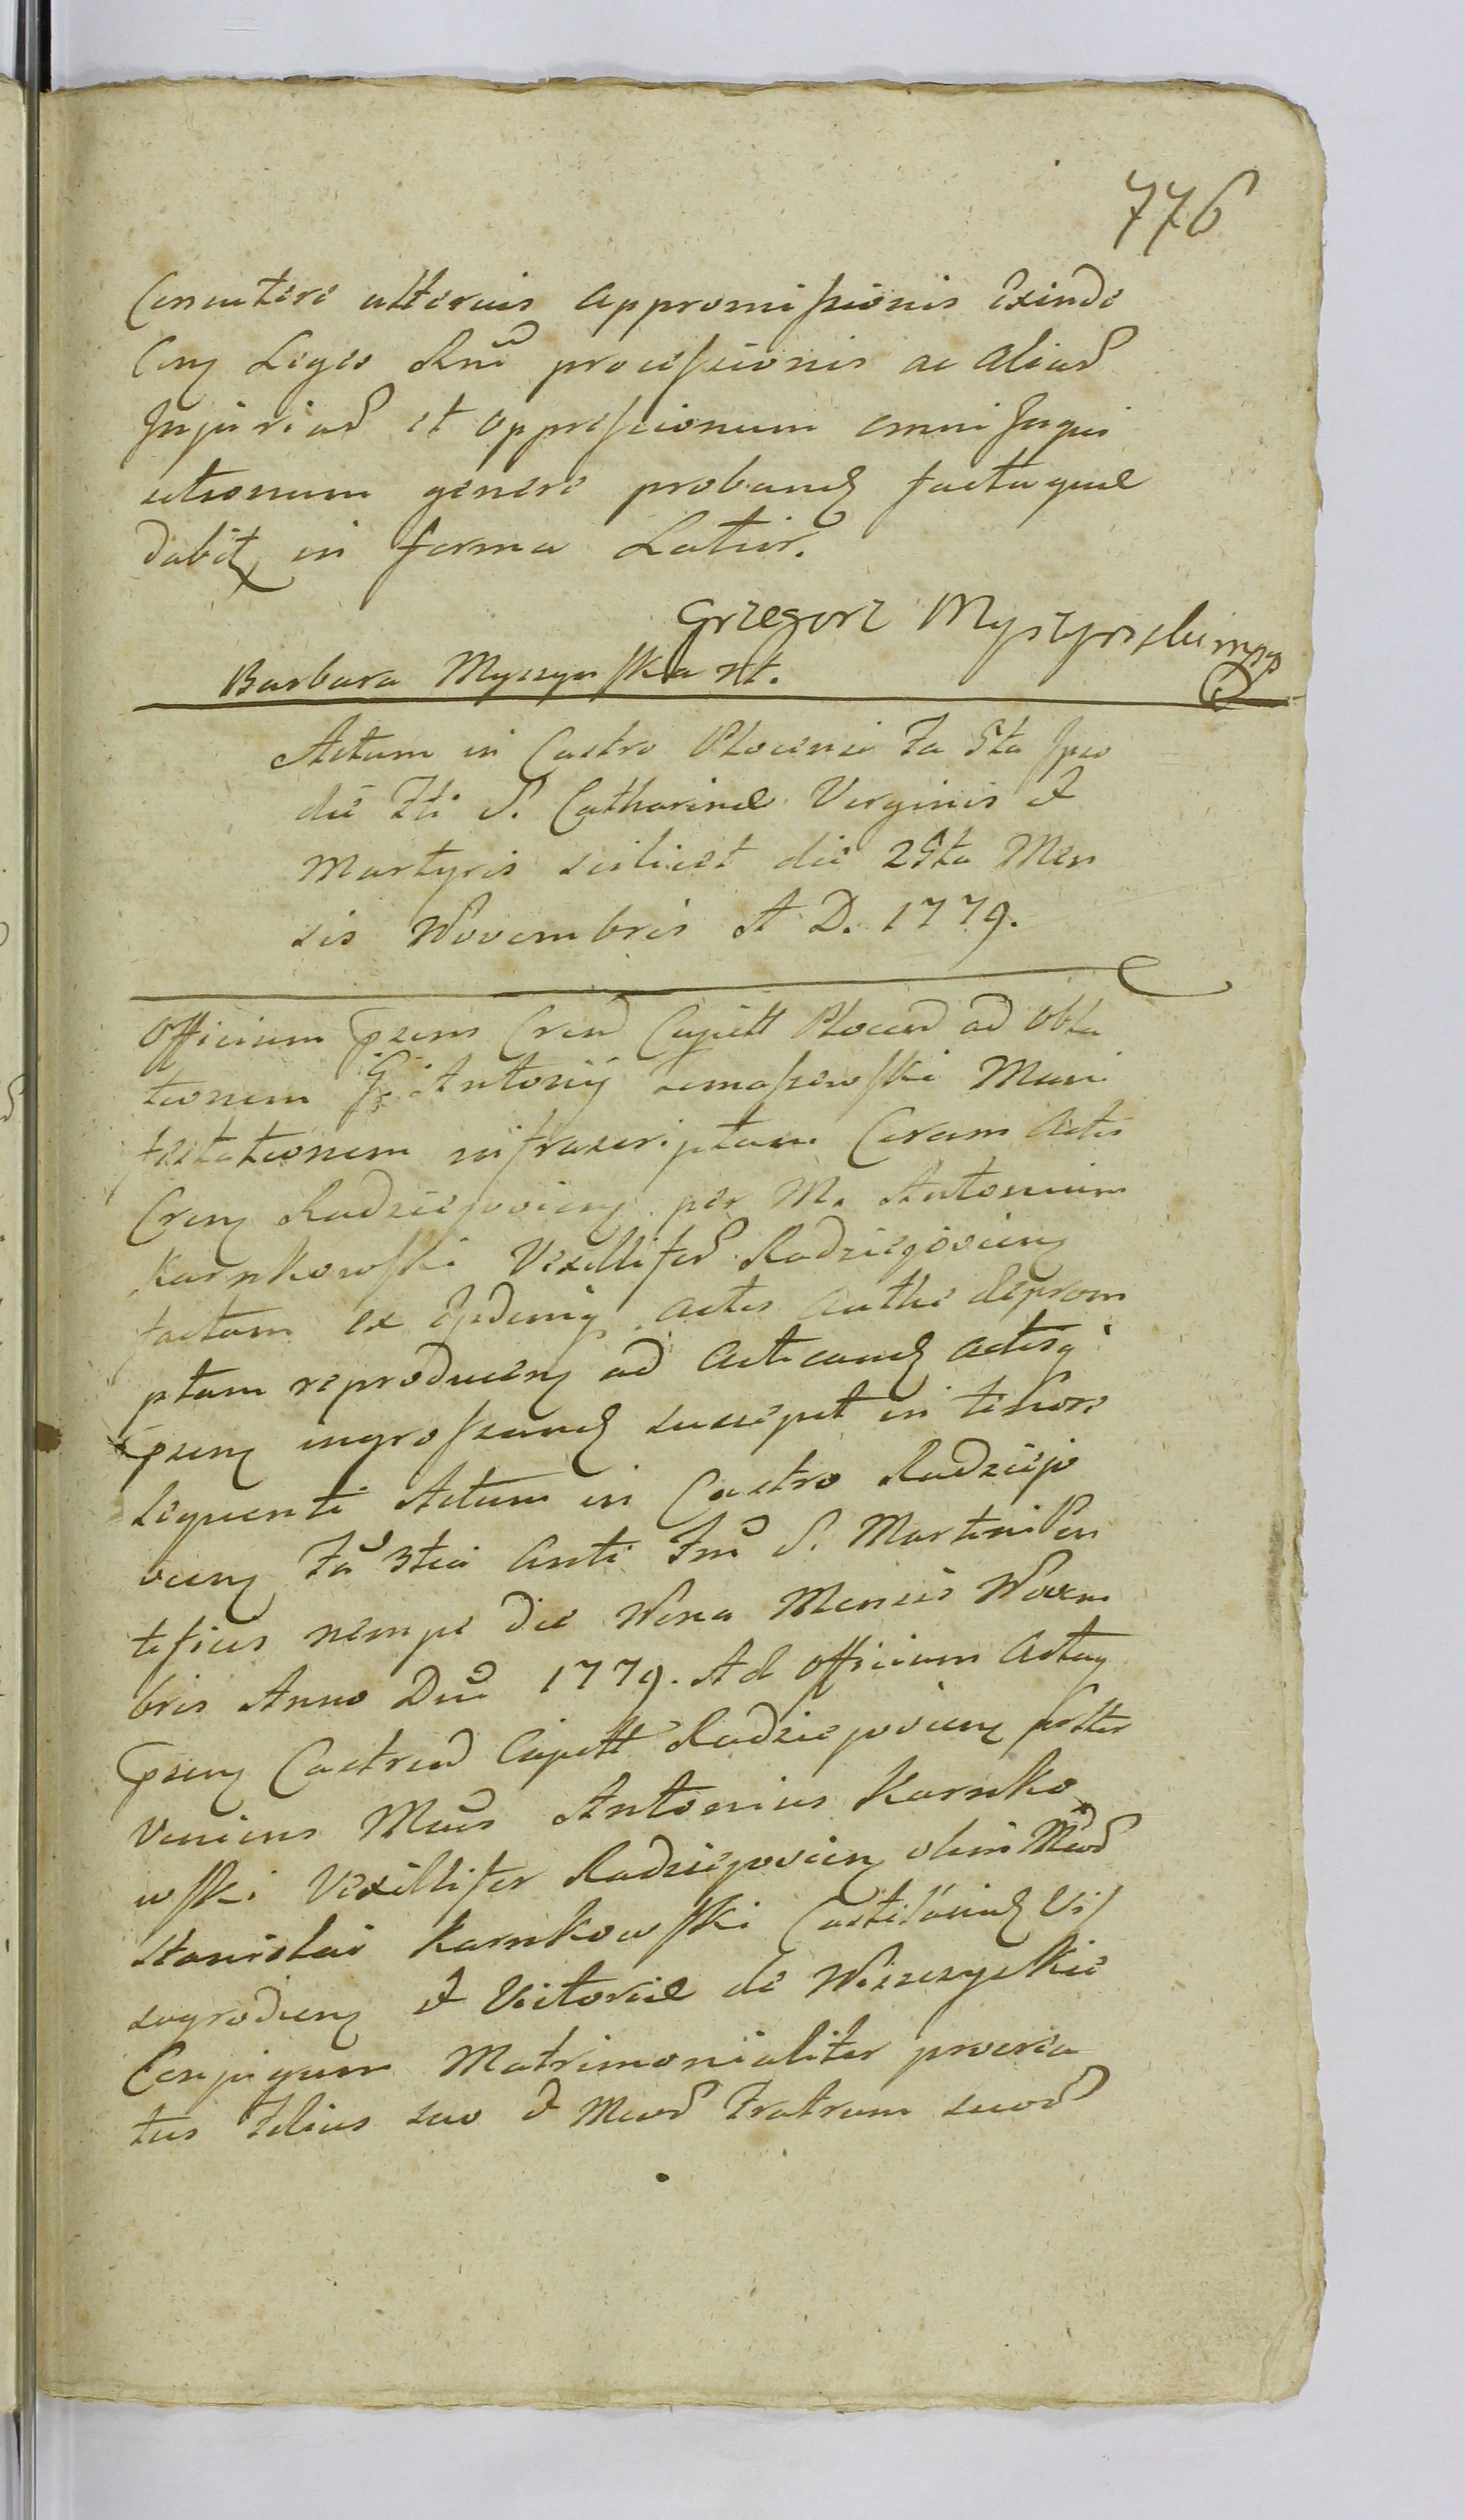 776
Censutere ulterius appromissionis Exinde
Cnq Legis Rni processionis ac aliarum
Injuriarum et oppressionum omni Inqui
sitionum genere proband factaque
dabit in forma Latiori.
Grzegorz Myszynski mpp
Barbara Myszynska xt.
Actum in Castro Plocensi Fa 5ta Ipso
die Fti S. Catharinæ Virginis et
Martyris scilicet die 25ta Men
sis Novembris A D. 1779.
Officium Psens Cren Capitt Plocen ad obla
tionem G. Antonij Tomaszewski Mani
festationem infrascriptam Coram Actis
Cren Radziejovien per M. Antonium
Karnkowski Vexilliferum Radziejovien
factam ex eisdemq actis authe deprom
ptam reproducen ad acticand actisq
Psen ingrossand suscepit in tenore
sequenti Actum in Castro Radziejo
vien Fa 3tia Ante Fm S. Martini Pon
tificis nempe die Nona Mensis Novem
bris Anno Dni 1779. Ad officium Actaq
Psen Castren Capitt Radziejovien psltr
veniens Mcus Antonius Karnko
wski Vexillifer Radziejovien olim Mcorum
Stanislai Karnkowski Castellanid Vis
sogrodien et Victoriæ de Wiszczyckie
Conjugum Matrimonialiter procrea
tus Filius suo et Mcorum Fratrum suorum